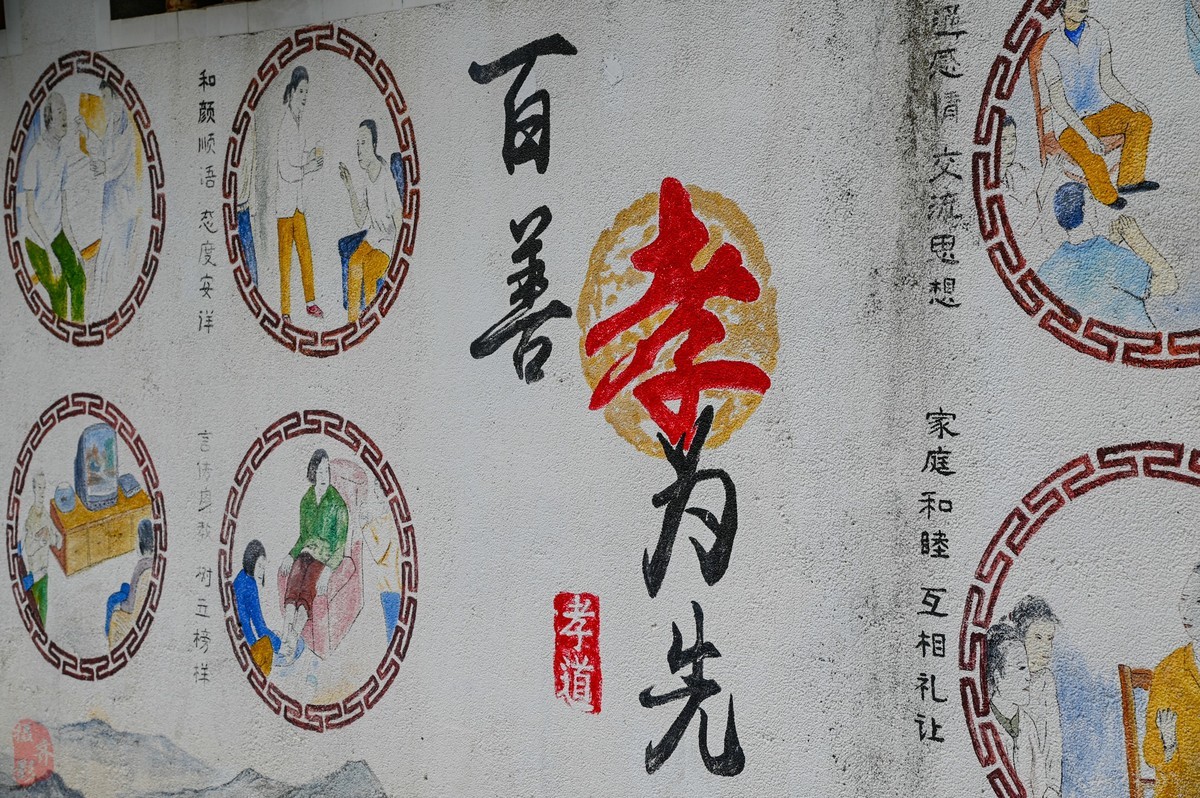 百善
孝为先
孝道
和颜顺语 态度安详
言传身教 树立榜样
感情 交流思想
家庭和睦 互相礼让